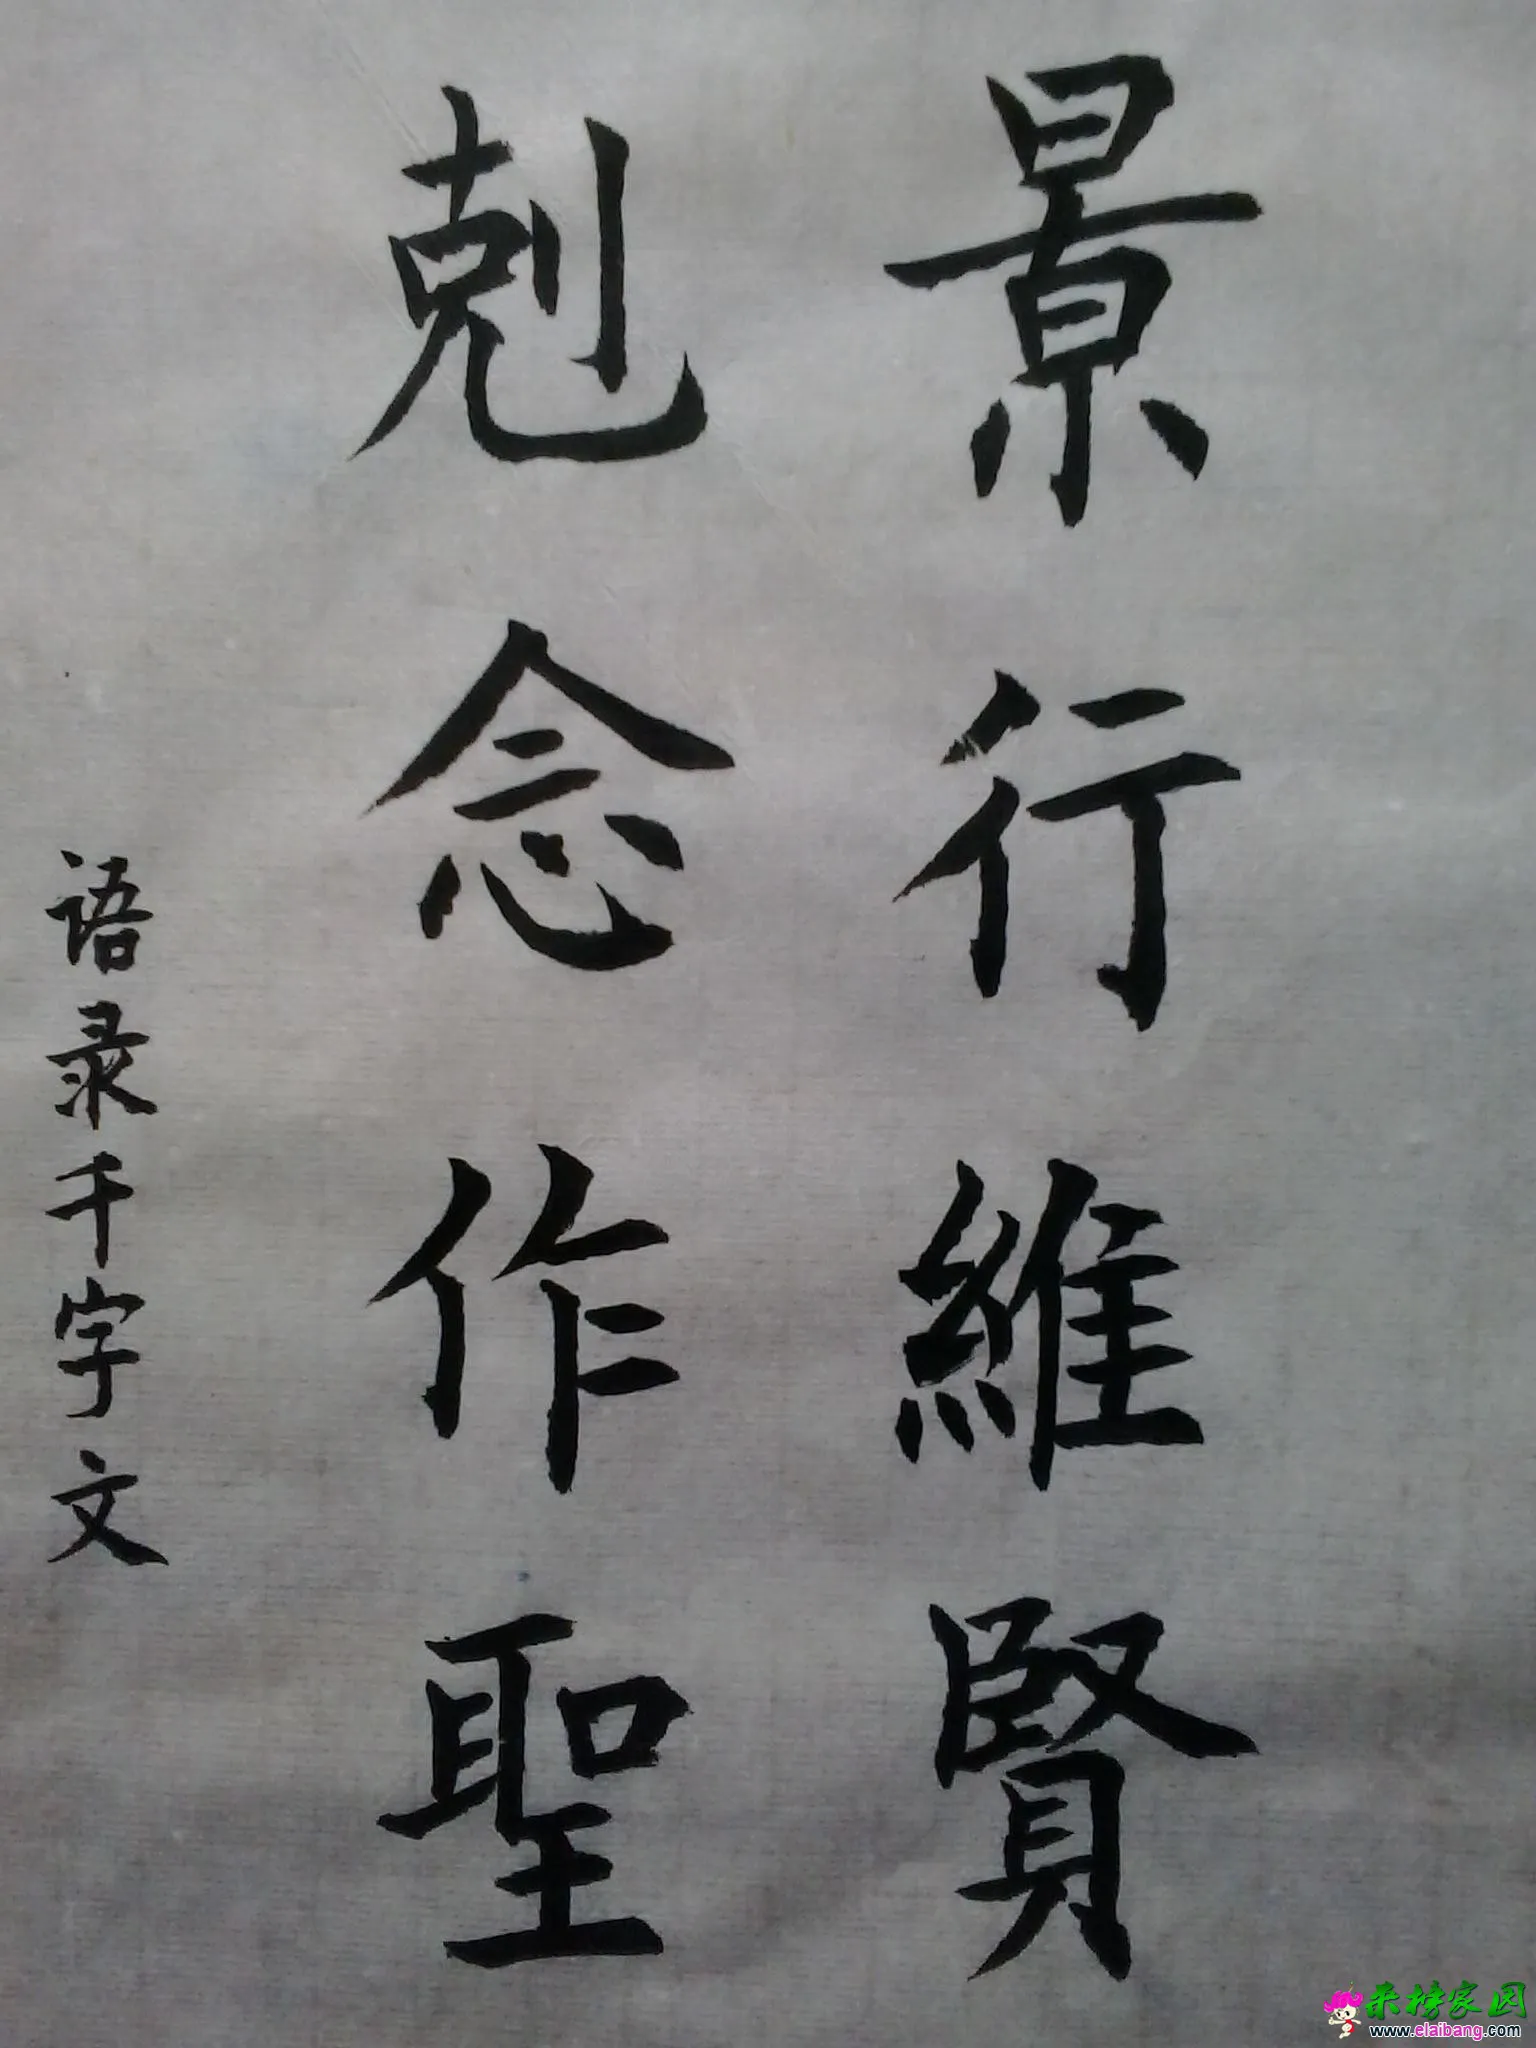 景行維賢
剋念作聖
语录千字文
来榜家园
www.elaibang.com